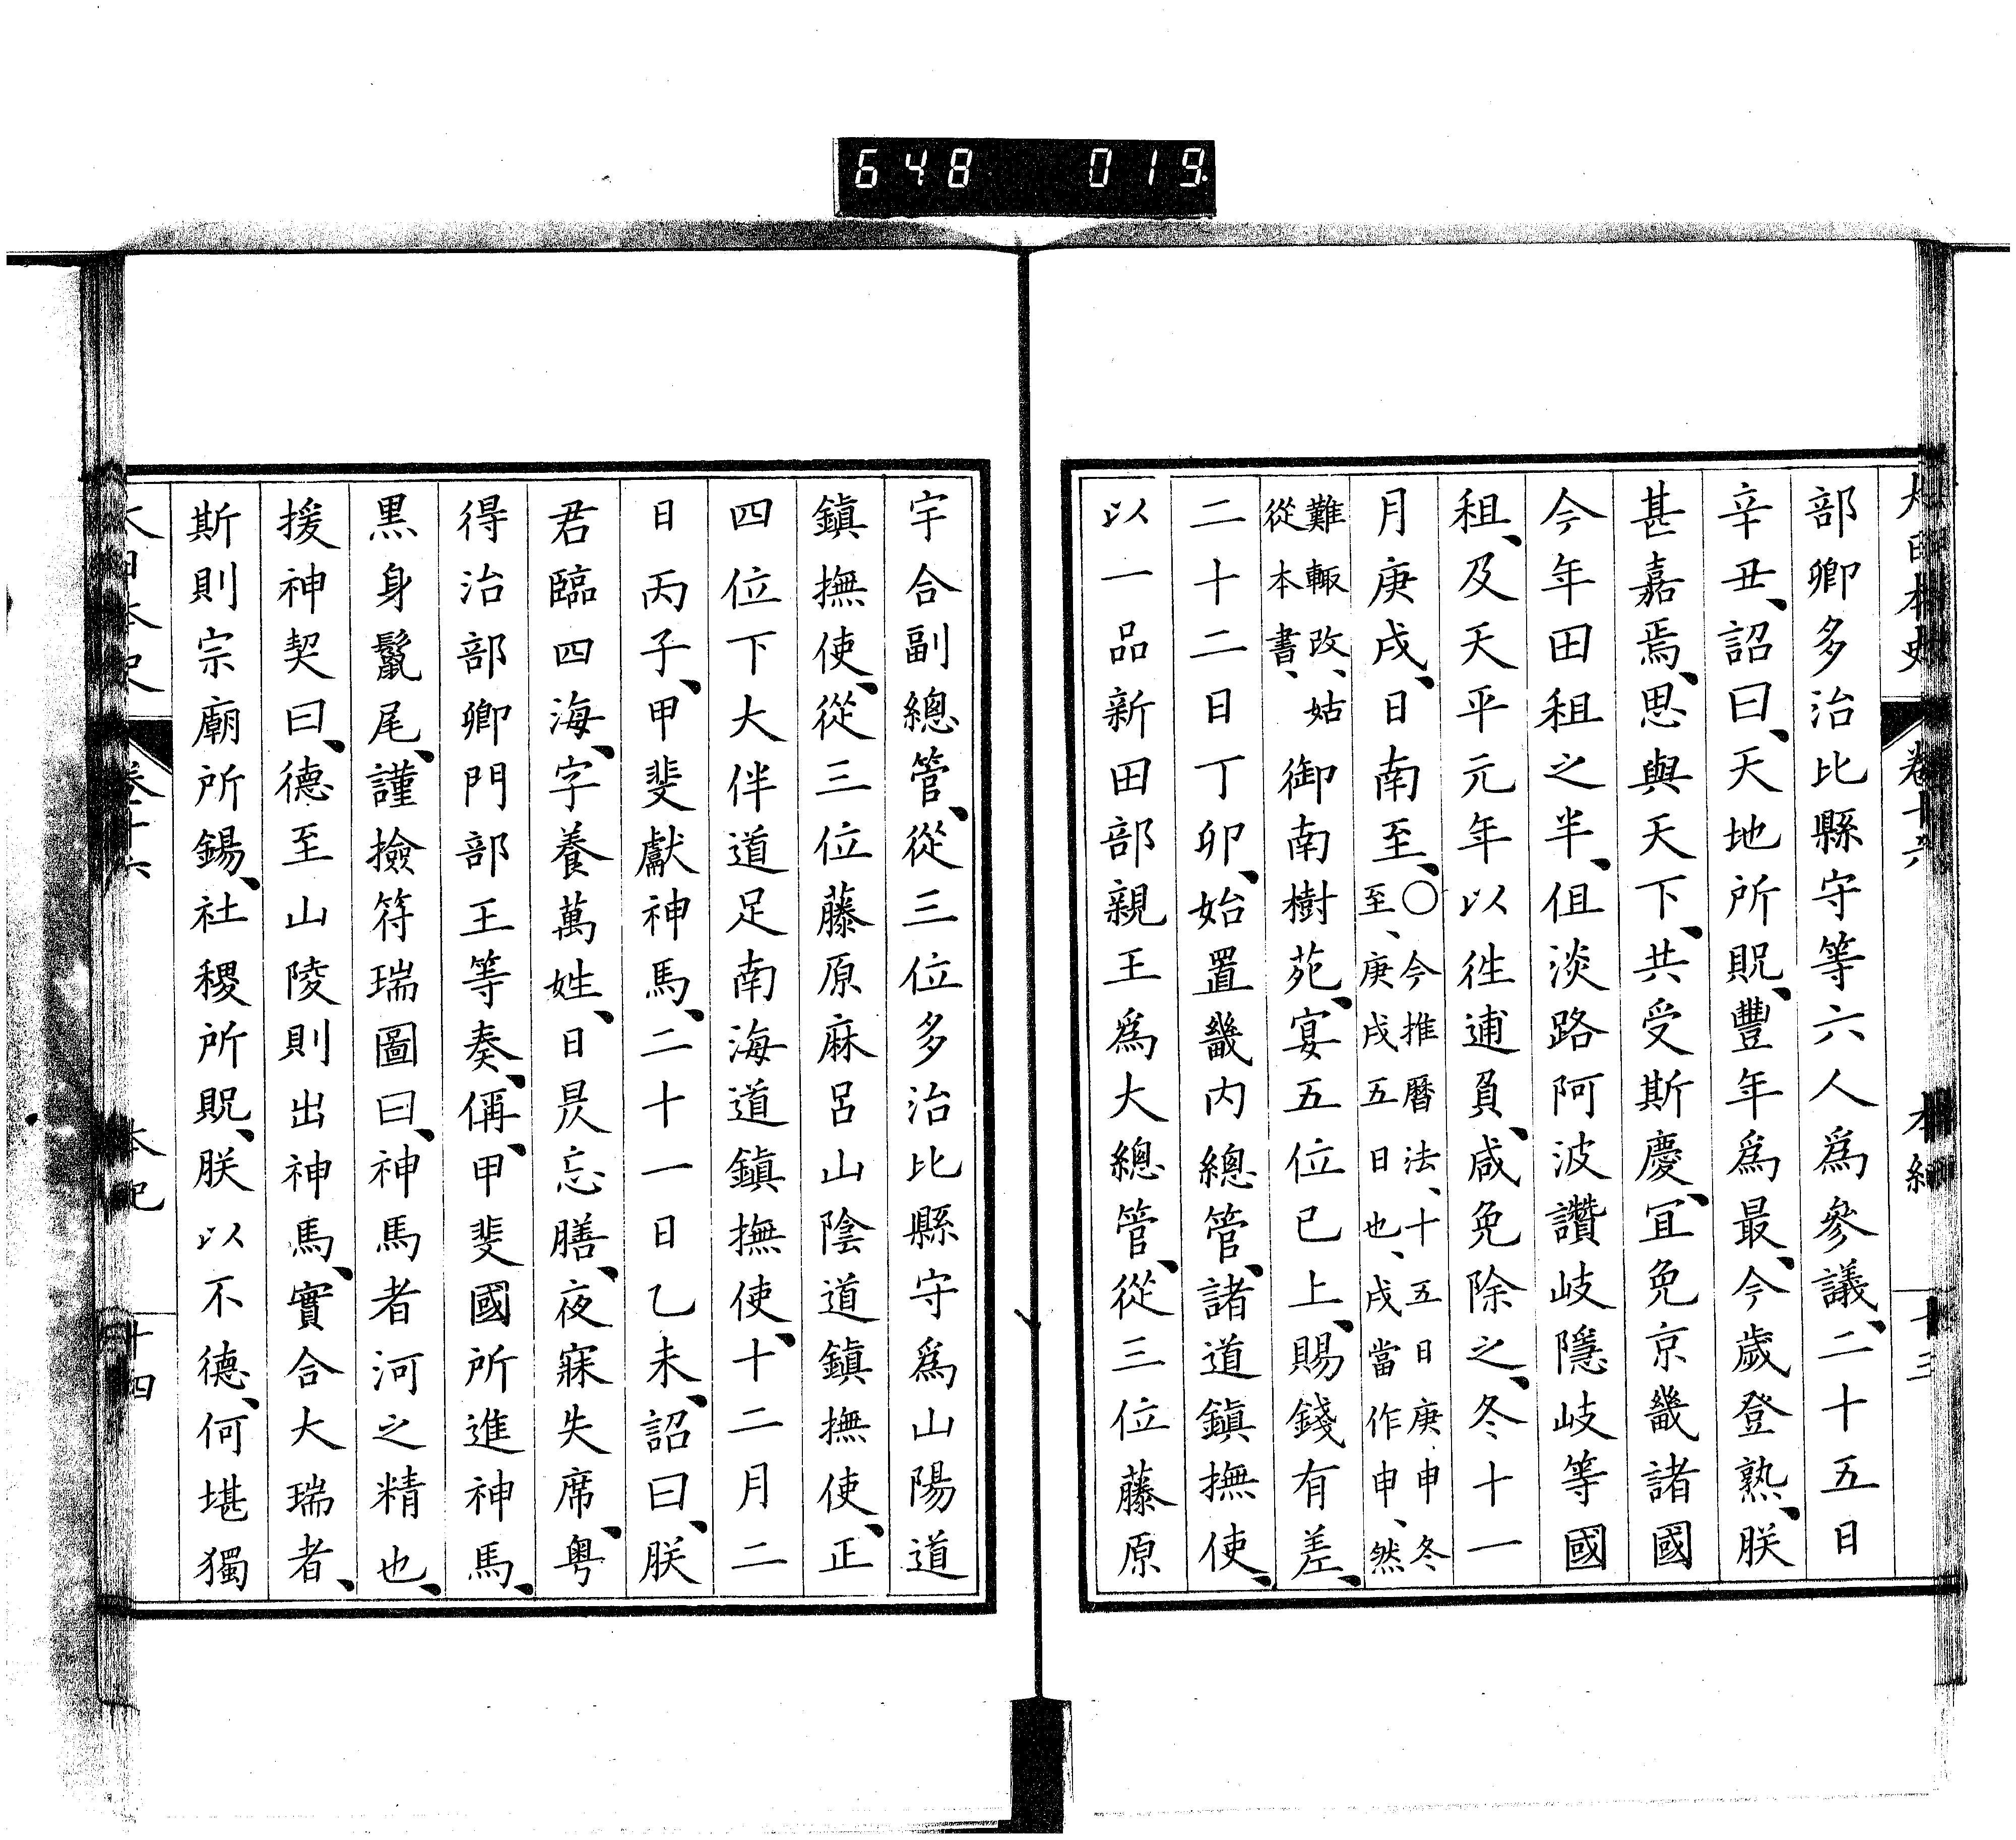 648 019
大日本史 卷十六 本紀 十三
部卿多治比縣守等六人爲參議、二十五日
辛丑、詔曰、天地所貺、豐年爲最、今歲登熟、朕
甚嘉焉、思與天下、共受斯慶、宜免京畿諸國
今年田租之半、但淡路阿波讚岐隱岐等國
租、及天平元年以徃逋負、咸免除之、冬十一
月庚戌、日南至、○今推曆法、十五日庚申冬
至、庚戌五日也、戌當作申、然
難輙改、姑
從本書、
御南樹苑、宴五位已上、賜錢有差、
二十二日丁卯、始置畿內總管、諸道鎭撫使、
以一品新田部親王爲大總管、從三位藤原
宇合副總管、從三位多治比縣守爲山陽道
鎭撫使、從三位藤原麻呂山陰道鎭撫使、正
四位下大伴道足南海道鎭撫使、十二月二
日丙子、甲斐獻神馬、二十一日乙未、詔曰、朕
君臨四海、字養萬姓、日昃忘膳、夜寐失席、粤
得治部卿門部王等奏、偁、甲斐國所進神馬、
黑身鬣尾、謹撿符瑞圖曰、神馬者河之精也、
援神契曰、德至山陵則出神馬、實合大瑞者、
斯則宗廟所錫、社稷所貺、朕以不德、何堪獨
大日本史 卷十六 本紀 十四